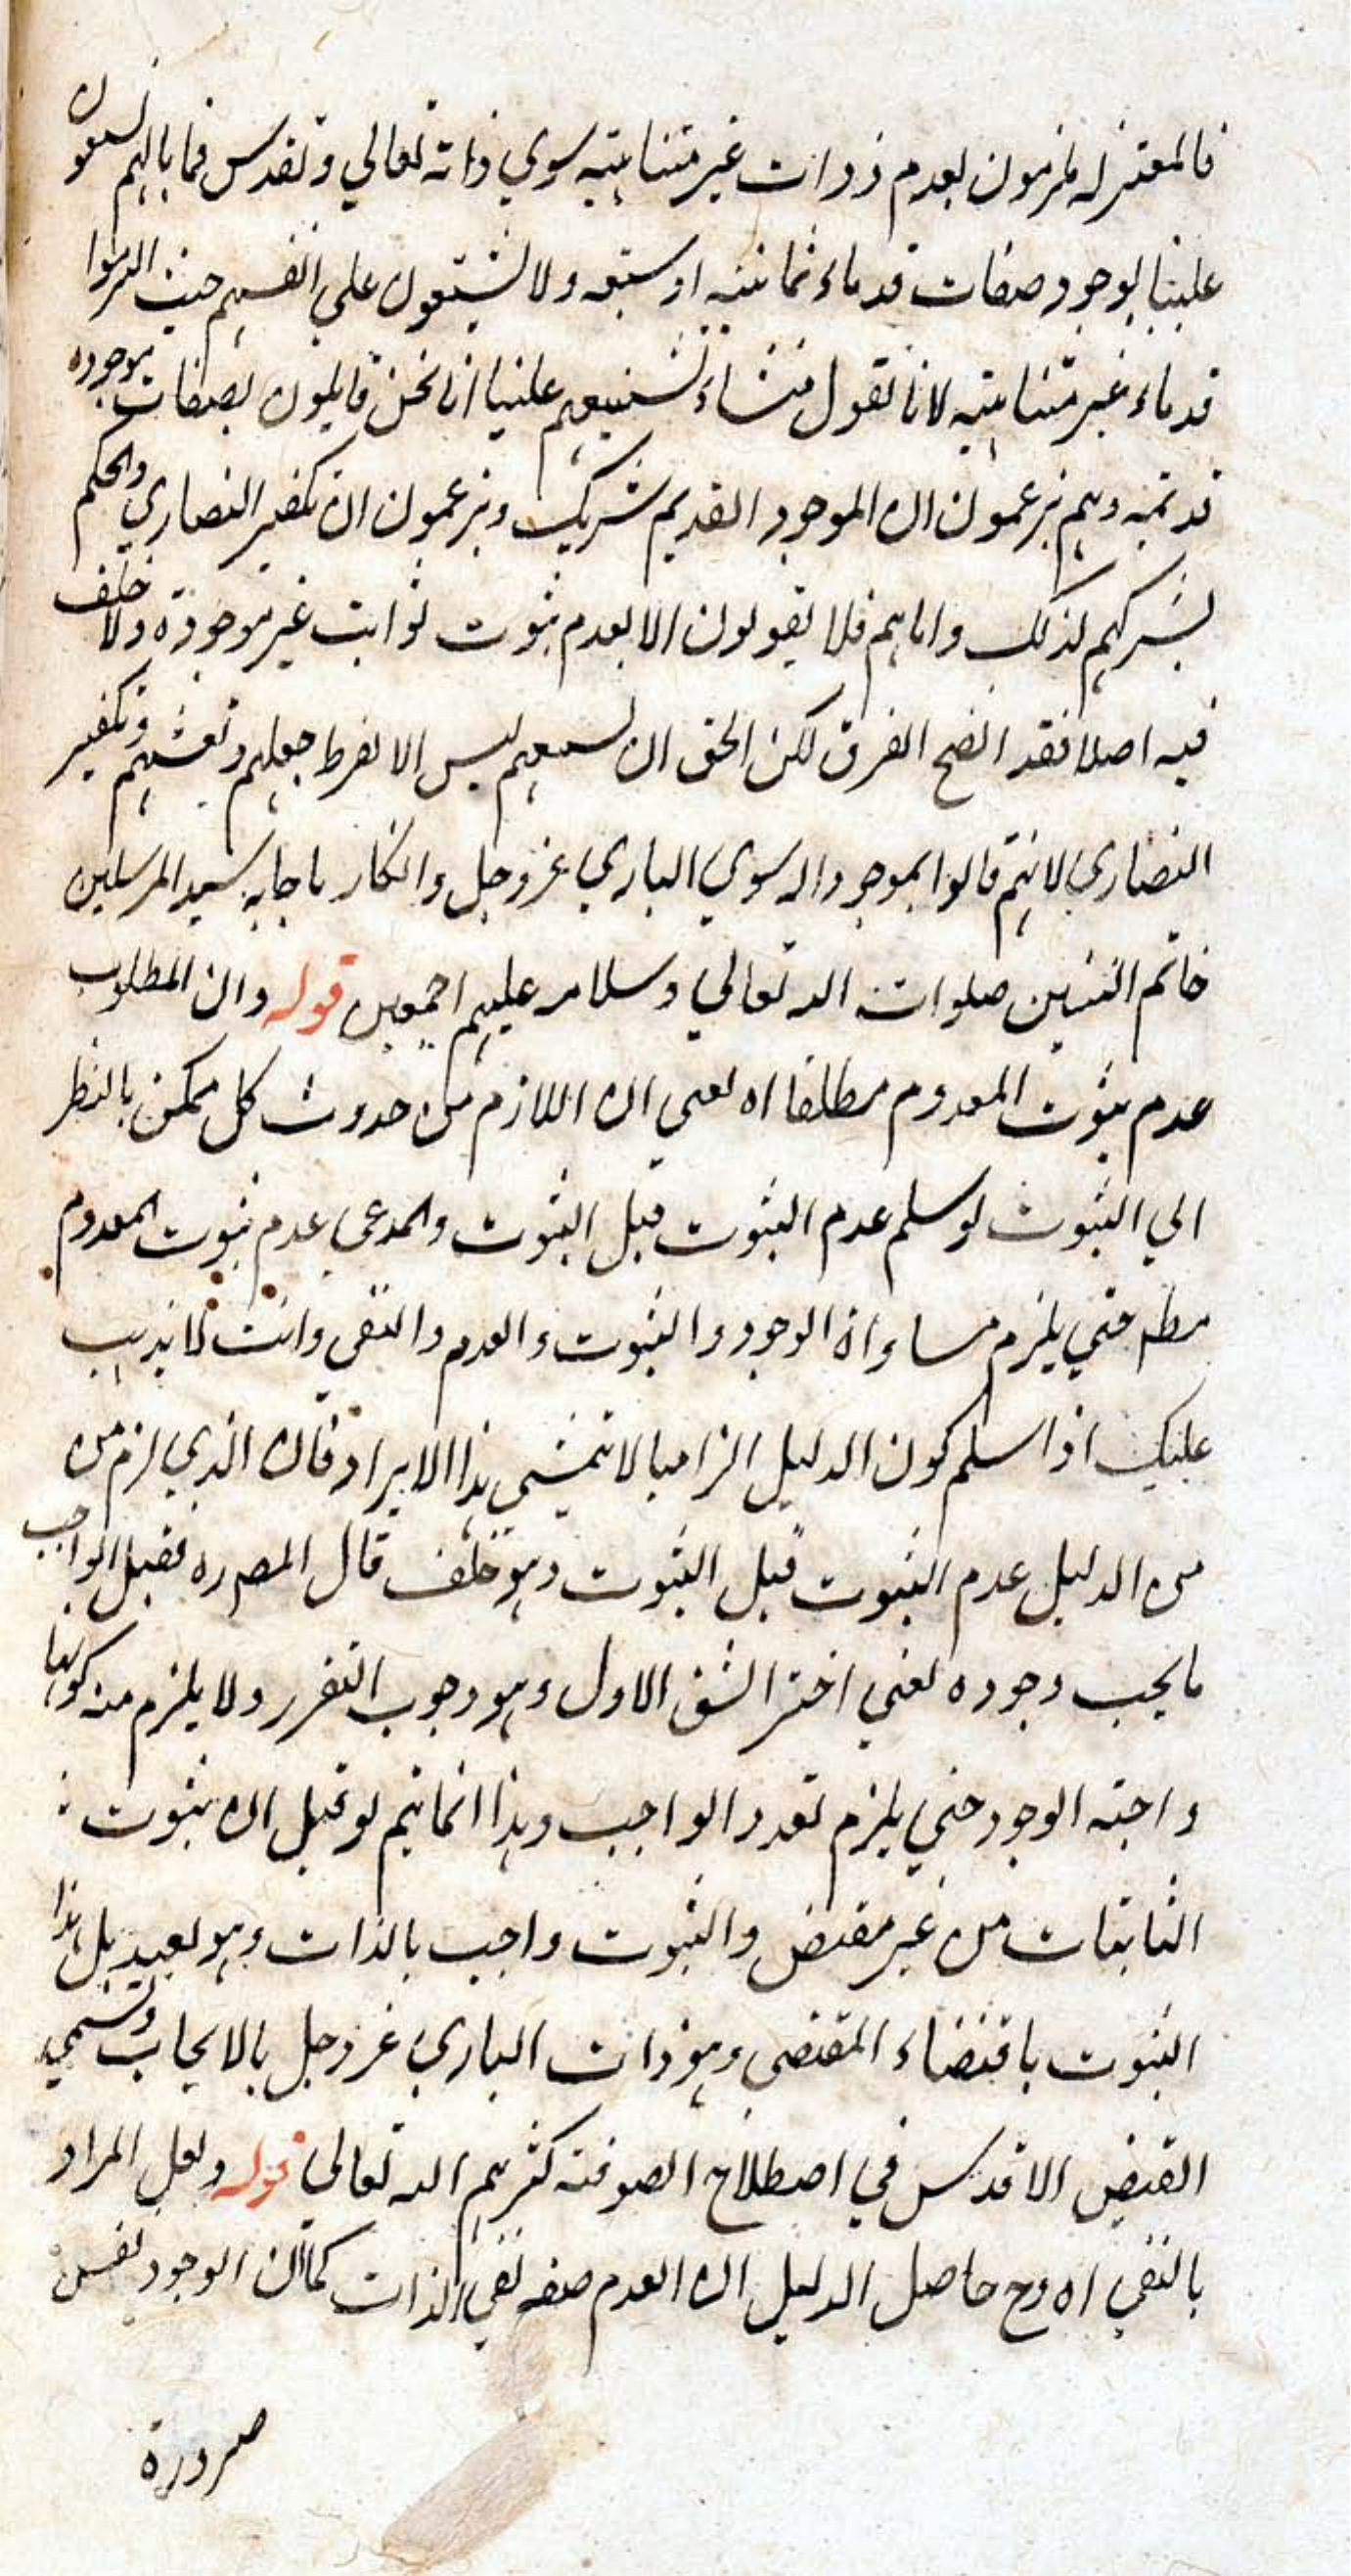 فالمعتزله ملزمون بعدم ذوات غير متناهيه سوي ذاته تعالي وتقدس فما بالهم يشنعون
علينا بوجود صفات قدماء ثمانيه او سبعه ولا يشنعون علي انفسهم حيث التزموا
قدماء غير متناهيه لانا نقول منشاء تشنيعهم علينا انا نحن قايلون بصفات موجوده
قديمه وهم يزعمون ان الموجود القديم شريك ويزعمون ان تكفير النصاري والحكم
بشركهم لذلك واما هم فلا يقولون الا بعدم ثبوت ثوابت غير موجودة ولا خلف
فيه اصلا فقد اتضح الفرق لكن الحق ان تشنيعهم ليس الا لفرط جهلهم وتعنتهم وتكفير
النصاري لانهم قالوا بموجود اله سوي الباري عز وجل وانكار ما جاء به سيد المرسلين
خاتم النبيين صلوات الله تعالي وسلامه عليهم اجمعين قوله وان المطلوب
عدم ثبوت المعدوم مطلقا اه يعني ان اللازم من حدوث كل ممكن بالنظر
الي الثبوت لو سلم عدم الثبوت قبل الثبوت والمدعي عدم ثبوت المعدوم
مطه حتي يلزم مساواة الوجود والثبوت والعدم والنفي وانت لا يذهب
عليك اذا سلم كون الدليل الزاميا لا يتمشي هذا الايراد فان الذي لزم من
من الدليل عدم الثبوت قبل الثبوت وهو خلف قال المصره فقبل الواجب
ما يجب وجوده يعني اختر الشق الاول وهو وجوب التقرر ولا يلزم منه كونها
واجبة الوجود حتي يلزم تعدد الواجب وهذا انما يتم لو قيل ان ثبوت
الثابتات من غير مقتض والثبوت واجب بالذات وهو بعيد بل هذا
الثبوت باقتضاء المقتضي وهو ذات الباري عز وجل بالايجاب وتسمي
الفيض الاقدس في اصطلاح الصوفية كثرهم الله تعالي قوله ولعل المراد
بالنفي اه وح حاصل الدليل ان العدم صفه نفي الذات كما ان الوجود نفس
ضرورة